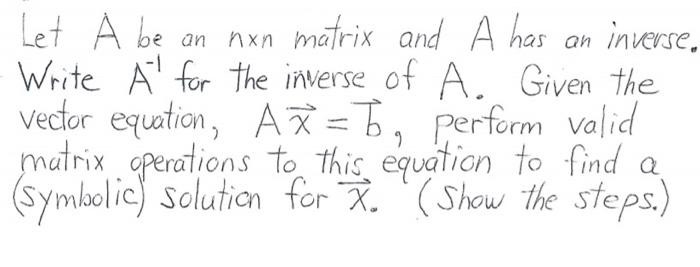 Let A be an nxn matrix and A has an inverse.
Write A⁻¹ for the inverse of A. Given the
vector equation, Ax⃗ = b⃗, perform valid
matrix operations to this equation to find a
(symbolic) solution for x⃗. (Show the steps.)